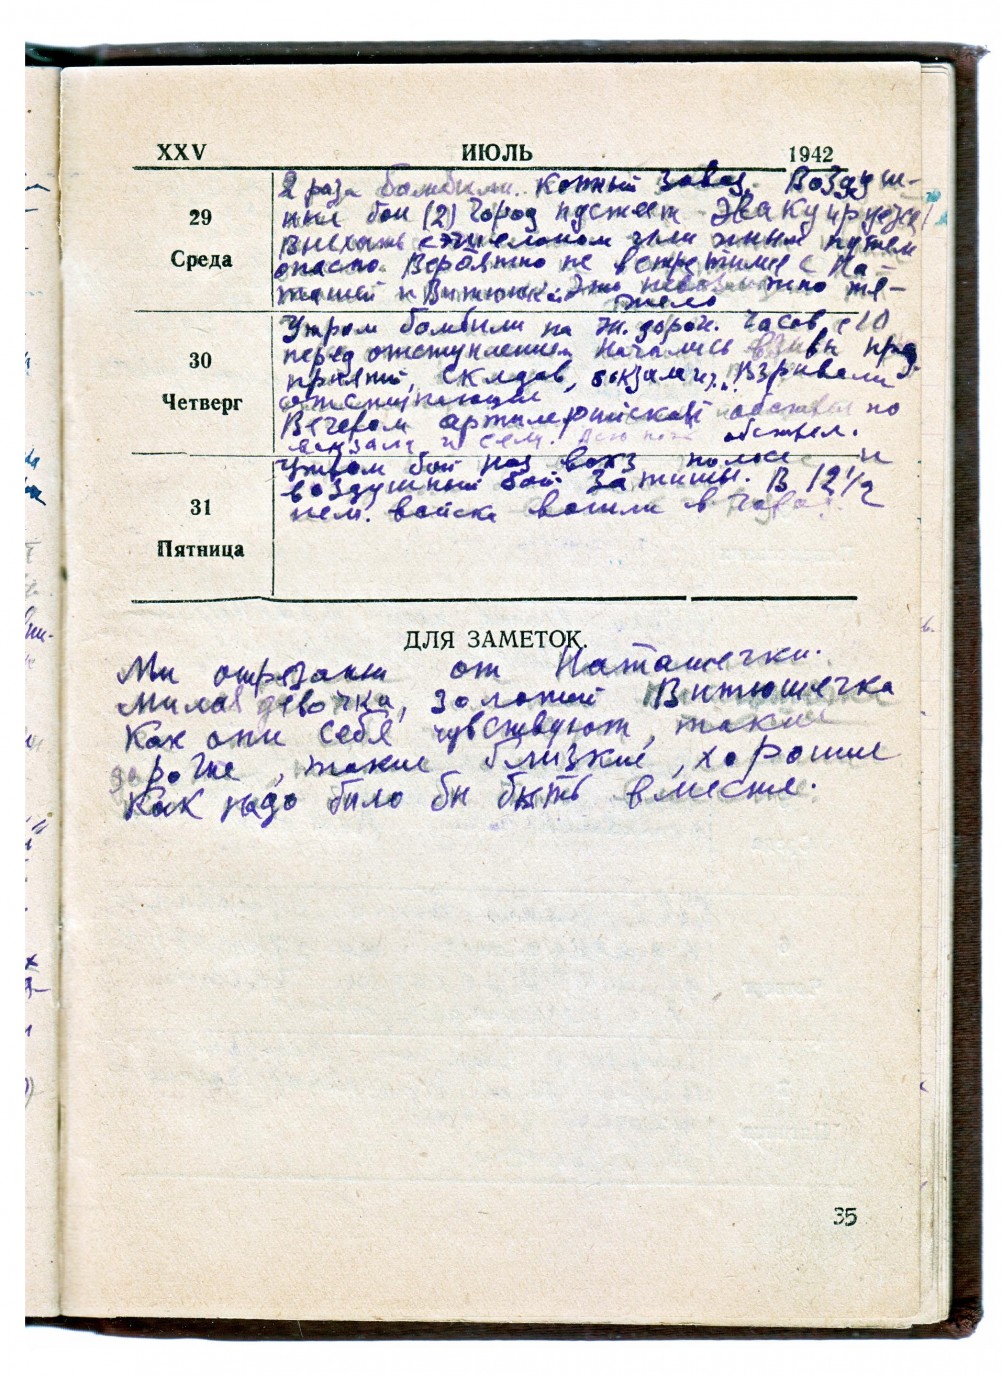 XXV ИЮЛЬ 1942
29
Среда
2 раза бомбили. Конный завод. Воздуш-
ные бои (2) Город пустеет. Эвакуируется
Выехать с эшелоном или иным путем
опасно. Вероятно не встретимся с На-
ташей и Витюшкой. Это невозможно тя-
жело
30
Четверг
Утром бомбили на ж. дорож. Часов с 10
перед отступлением начались взрывы пред
приятий, складов, вокзала. Взрывали
отступающие
Вечером артиллерийский обстрел по
вокзалу и сем. Всю ночь обстрел.
31
Пятница
Утром бой воз вокз полосе и
воздушный бой Затишье. В 12 1/2
нем. войска вошли в город.
ДЛЯ ЗАМЕТОК.
Мы отрезаны от Наташечки.
Милая девочка, золотой Витюшечка
Как они себя чувствуют, такие
дорогие, такие близкие, хорошие
Как надо было бы быть вместе.
35